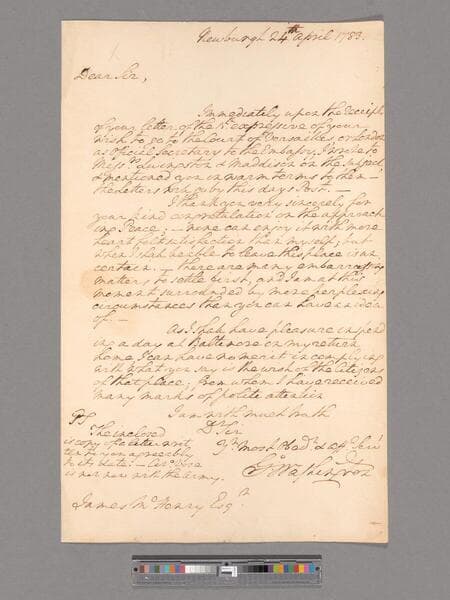 Newburgh 24th April 1783.
Dear Sir,
Immediately upon the receipt
of your letter of the expressive of your
wish to go to the Court of Versailles or London
as Official Secretary to the Embassy, I wrote to
Messrs Livingston & Maddison on the subject,
& mentioned you in warm terms to them —
the letters with go by this days Post. —
I thank you very sincerely for
your kind congratulation on the approach
ing Peace; — none can enjoy it with more
heart felt satisfaction than myself; but
when I shall be able to leave this place is un
certain. — there are many embarrassing
matters to settle first, and I am at this
moment surrounded by more perplexing
circumstances than you can have an idea
of. —
As I shall have pleasure in spend
ing a day at Baltimore on my return
home, I can have no merit in complying
with what you say is the wish of the Citizens
of that place; from whom I have received
many marks of polite attention
I am with much truth
Dr Sir
Yr Most Obedt & Affe Servt
Go: Washington
PS
The inclosed
is copy of a letter writ
ten to you agreeably
to its date: —
is not now with the Army.
James McHenry Esqr